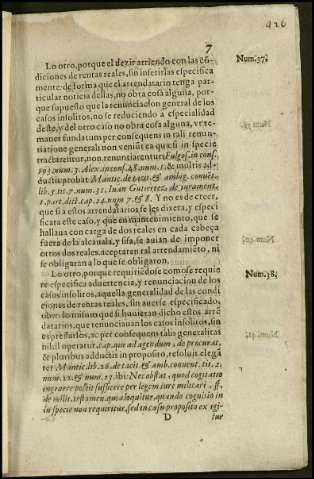 7
Lo otro, porque el dezir arriendo con las cõ-
diciones de rentas reales, sin inserirlas especifica
mente: de forma que el arrendatario tenga par-
ticular noticia dellas, no obra cosa alguna, por-
que supuesto que la renunciacion general de los
casos insolitos, no se reduciendo a especialidad
desto, y del otro caso no obra cosa alguna,
manet fundatum per consequens in tali renun-
tiatione generali non veniũt ea quæ si in specie
tractarẽtur, non renunciarentur: Fulgos. in cons.
193. num. 3. Alex. in cons. 48. num. 1. & multis ad-
ductis probat Mantic. de tacit. & ambig. conuẽt.
lib. 3. tit. 7. num. 31. Iuan Gutierrez de iurament.
1. part. dict. cap. 24. num 7. & 8. Y no es de creer,
que si a estos arrendatarios se les dixera, y especi
ficara este caso, y que en mantenimiento, que se
hallaua con carga de dos reales en cada cabeça
fuera de la alcauala, y sisa, se auian de imponer
otros dos reales, aceptaran tal arrendamiẽto, ni
se obligaran a lo que se obligaron.
Num. 37.
Lo otro, porque requiriẽdose como se requie
re especifica aduertencia, y renunciacion de los
casos insolitos, aquella generalidad de las condi
ciones de rentas reales, sin auerse especificado,
obro lo mismo que si huuieran dicho estos arrẽ
datarios, que renunciauan los casos insolitos, sin
expressarlos, ac per consequens talis generalitas
nihil operatur, cap. quæ ad agendum, de procurat.
& pluribus adductis in proposito, resoluit elegã
ter Mantic. lib. 28. de tacit. & amb. conuent. tit. 2.
num. 12. & num. 17. ibi: Nec obstat, quod cogitatio
improre possit sufficere per legem iure militari, ff.
de milit. testamen. quæ loquitur, quando cognitio in
in specie non requiritur, sed in casu proposito exigi-
Num. 38.
D
tur